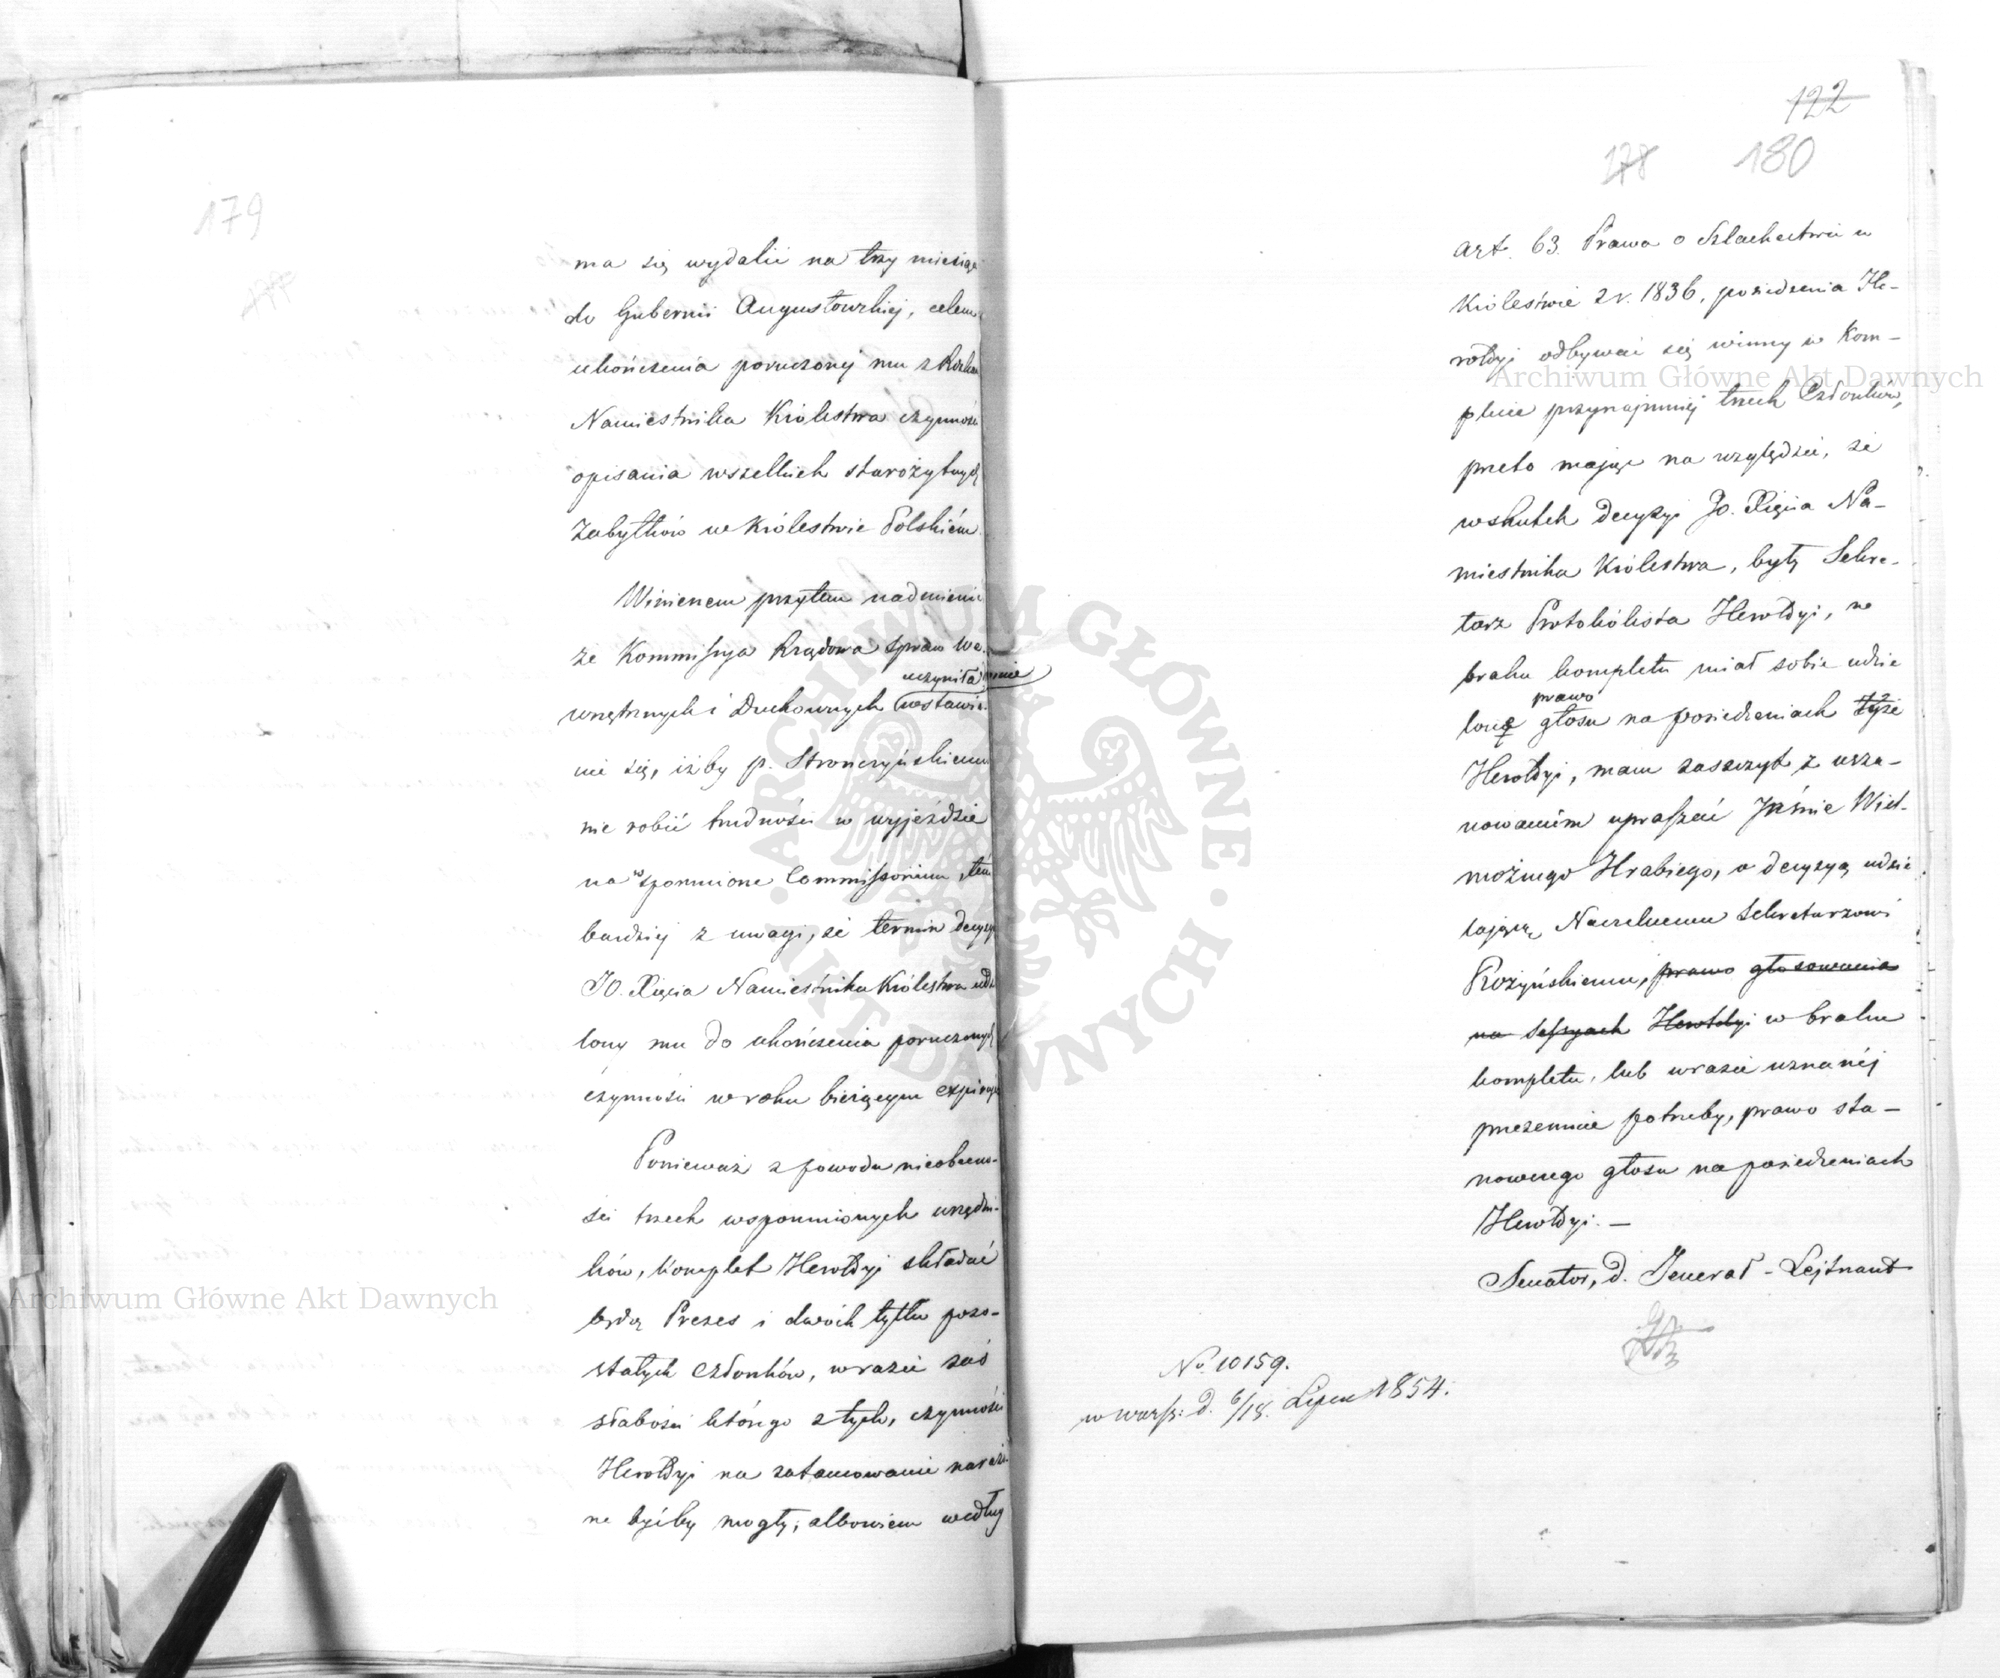 179
177
ma się wydalić na trzy miesiące
do Gubernii Augustowskiej, celem
ukończenia poruczonej mu z
Namiestnika Królestwa czynności
opisania wszelkich starożytnych
Zabytków w Królestwie Polskiém.
Winienem przytem nadmienić
że Kommissya Rządowa Spraw We-
uczyniła mnie
wnętrznych i Duchownych wstawie-
nie się, iżby p. Stronczyńskiemu
nie robić trudności w wyjeździe
na wspomnione Commissorium, tém
bardziej z uwagi, że termin decyzyą
JO. Xięcia Namiestnika Królestwa udzie
lony mu do ukończenia poruczonych
czynności w roku bieżącym
Ponieważ z powodu nieobecno-
ści trzech wspomnionych urzędni-
ków, komplet Heroldyi składać
będą Prezes i dwóch tylko pozo-
stałych członków, w razie zaś
słabości którego z tych, czynności
Heroldyi na zatamowanie narażo
ne byćby mogły; albowiem według
122
178 180
Art. 63. Prawa o Szlachectwie w
Królestwie z r. 1836, posiedzenia He-
roldyi odbywać się winny w kom-
plecie przynajmniej trzech Członków,
przeto mając na względzie, że
wskutek decyzyi JO. Xięcia Na-
miestnika Królestwa, były Sekre-
tarz Protokólista Heroldyi, w
braku kompletu miał sobie udzie
prawo
lone głosu na posiedzeniach tejże
Heroldyi, mam zaszczyt z usza-
nowaniem upraszać Jaśnie Wiel-
możnego Hrabiego, o decyzyą udzie
lającą Naczelnemu Sekretarzowi
Rożyńskiemu, prawo głosowania
na sessyach Heroldyi w braku
kompletu, lub w razie uznanéj
przezemnie potrzeby, prawo sta-
nowczego głosu na posiedzeniach
Heroldyi. —
Senator, d. Jenerał-Lejtnant
No 10159.
w Warsz: d. 6/18. Lipca 1854.
Archiwum Główne Akt Dawnych
Archiwum Główne Akt Dawnych
ARCHIWUM GŁÓWNE · AKT DAWNYCH ·